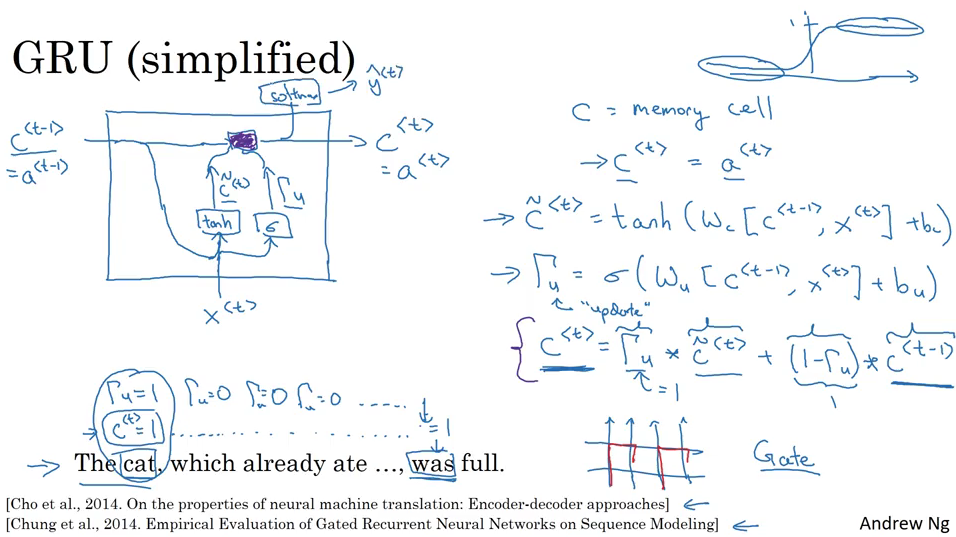 GRU (simplified)
softmax → ŷ<t>
c<t-1>
= a<t-1>
c<t>
= a<t>
c̃<t>
Γu
tanh
σ
x<t>
1
C = memory cell
→ c<t> = a<t>
→ c̃<t> = tanh (Wc [c<t-1>, x<t>] + bc)
→ Γu = σ (Wu [c<t-1>, x<t>] + bu)
"update"
c<t> = Γu * c̃<t> + (1-Γu) * c<t-1>
= 1
1
Γu=1 Γu=0 Γu=0 Γu=0 .....
c<t>=1 .......... = 1
→ The cat, which already ate …, was full.
Gate
[Cho et al., 2014. On the properties of neural machine translation: Encoder-decoder approaches] ←
[Chung et al., 2014. Empirical Evaluation of Gated Recurrent Neural Networks on Sequence Modeling] ←
Andrew Ng